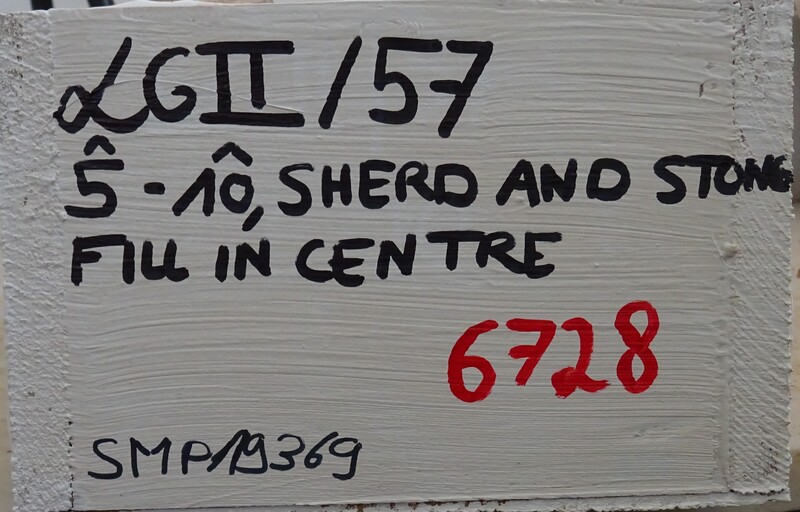 αGII/57
5̂ - 10̂, SHERD AND STONE
FILL IN CENTRE
6728
SMP19369